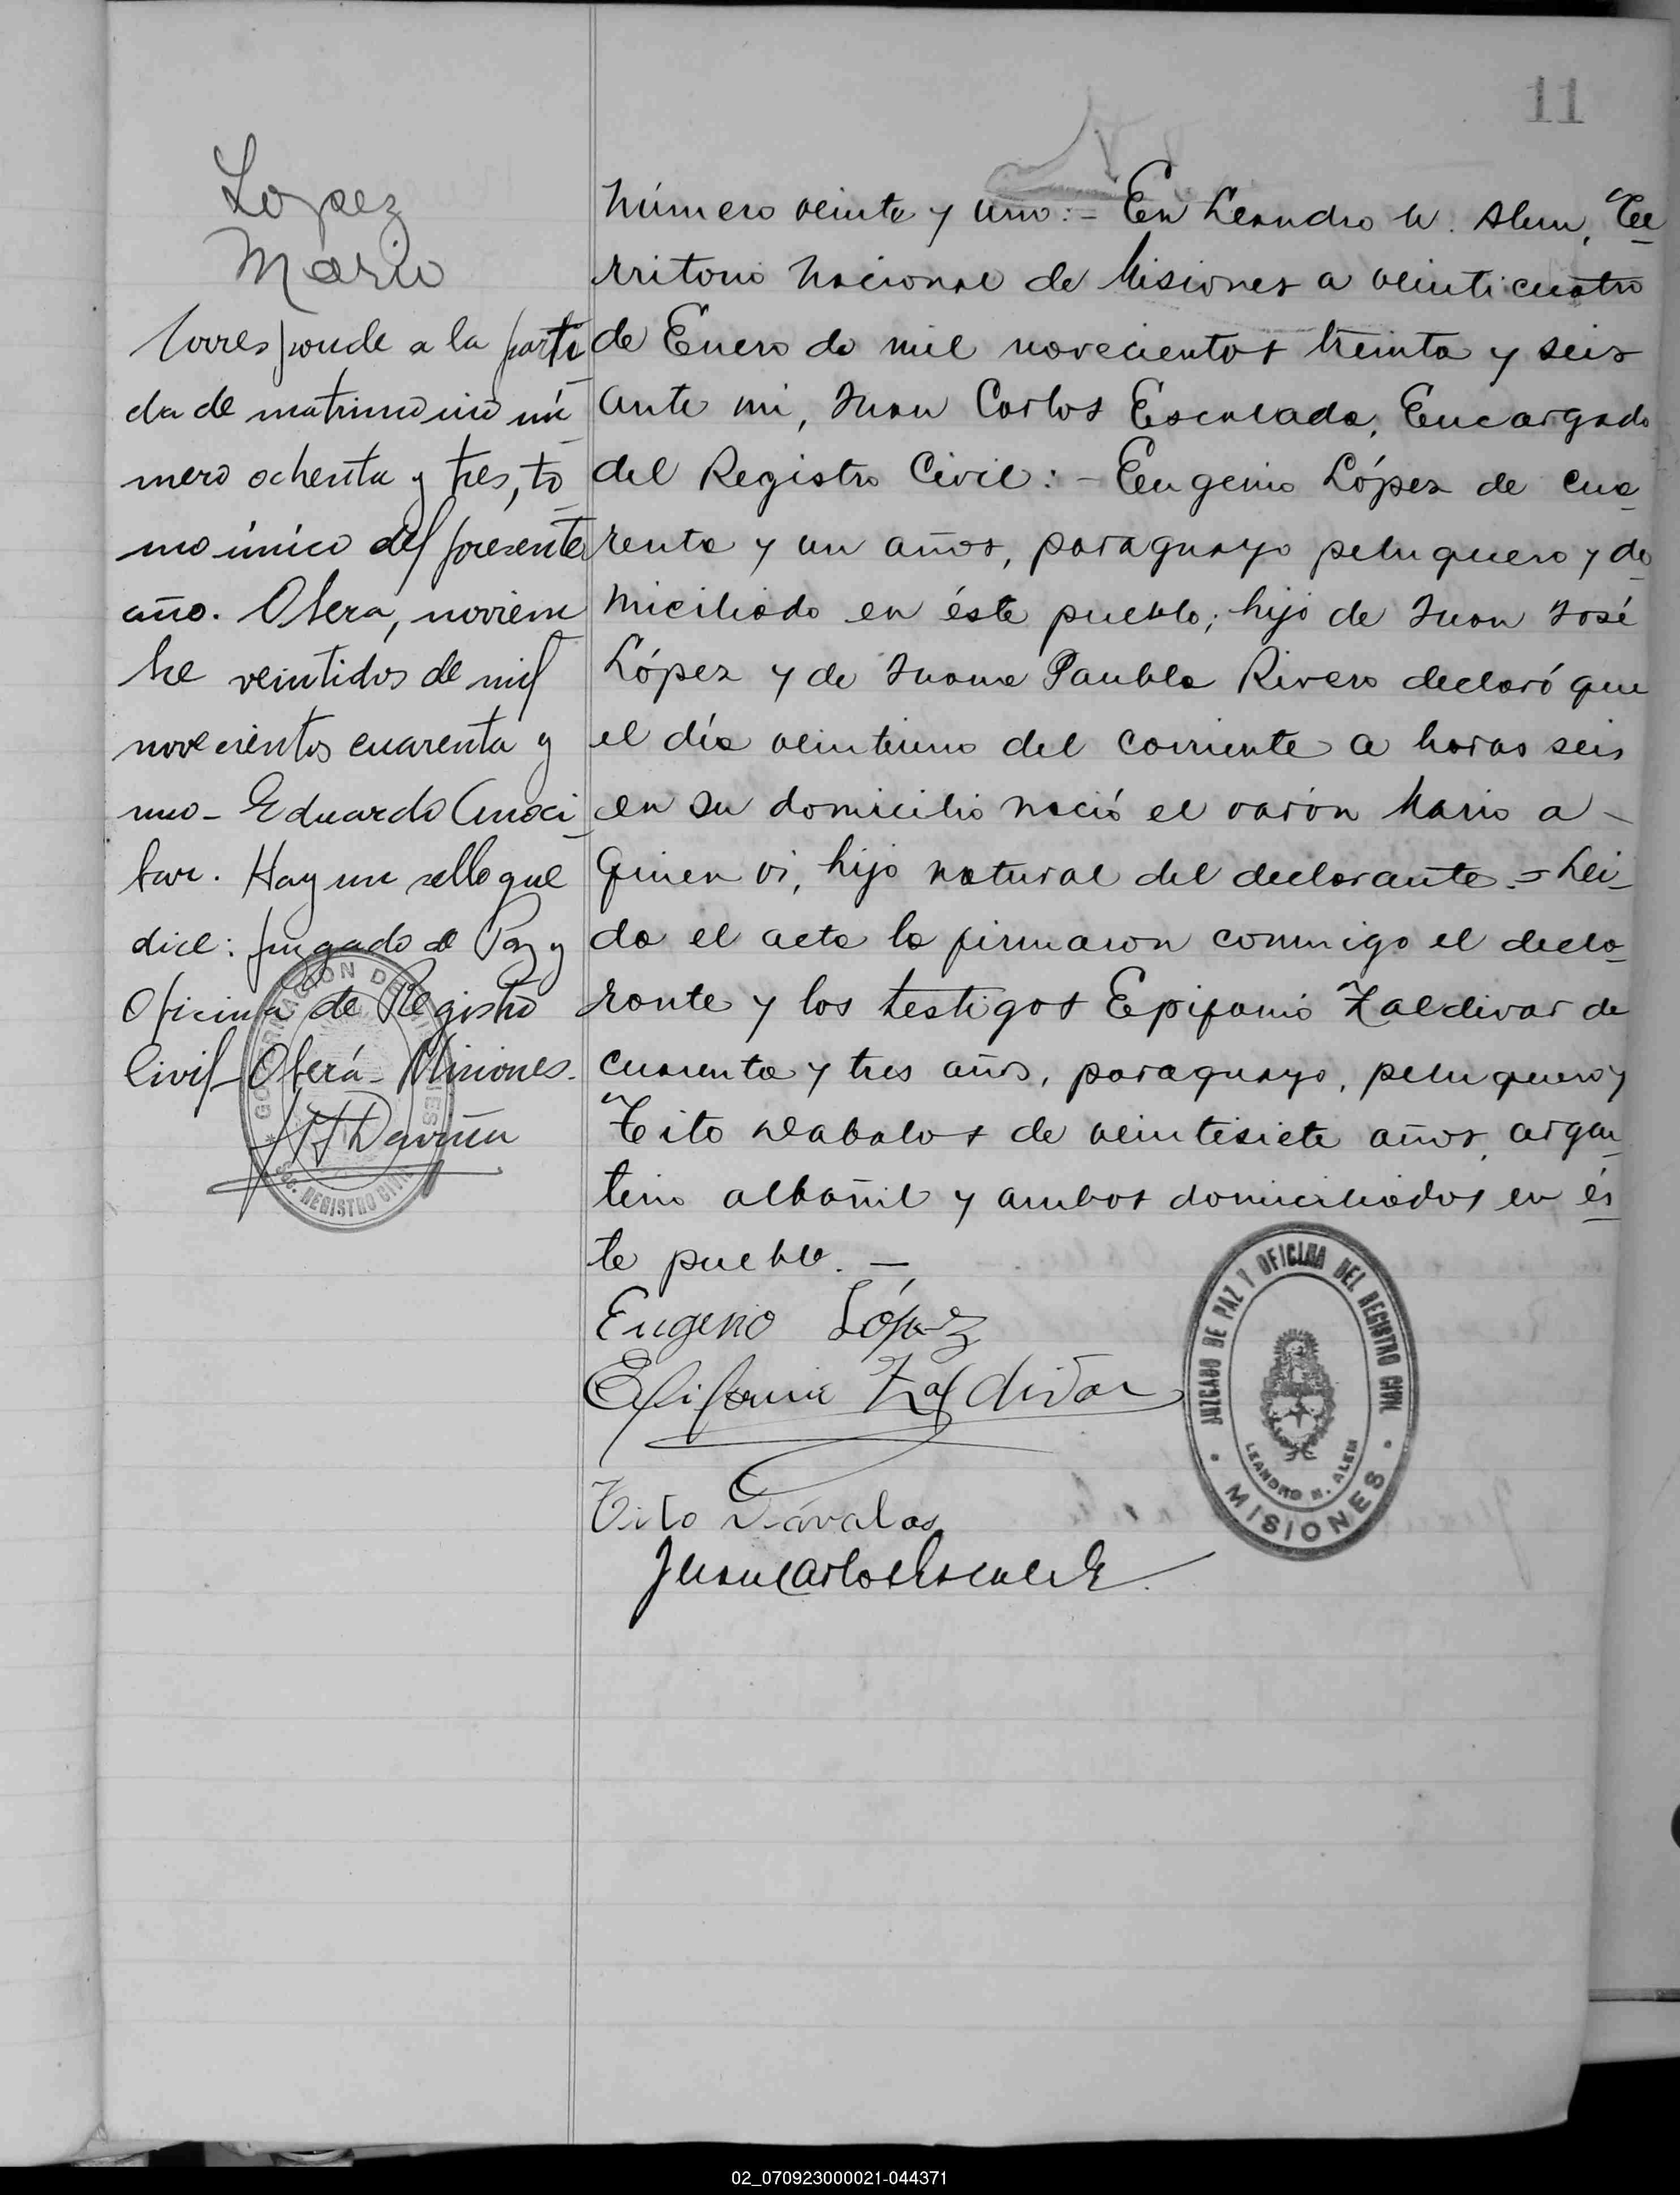 11
Lopez
Mario
Corresponde a la parti
da de matrimonio nú
mero ochenta y tres, to
mo único del presente
año. Oberá, noviem
bre veintidos de mil
novecientos cuarenta y
uno - Eduardo
Hay un sello que
dice: Juzgado de Paz y
Oficina de Registro
Civil - Oberá - Misiones.
GOBERNACION DE MISIONES
REGISTRO CIVIL
Número veinte y uno: - En Leandro N. Alem, Te
rritorio Nacional de Misiones a veinticuatro
de Enero de mil novecientos treinta y seis
ante mi, Juan Carlos Escalada, Encargado
del Registro Civil: - Eugenio López de cua
renta y un años, paraguayo peluquero y do
miciliado en éste pueblo; hijo de Juan José
López y de Juana Paubla Rivero declaró que
el día veintiuno del corriente a horas seis
en su domicilio nació el varón Mario a -
quien vi, hijo natural del declarante. = Lei
da el acta la firmaron conmigo el decla
rante y los testigos Epifanio Zaldivar de
cuarenta y tres años, paraguayo, peluquero y
Tito Dabalos de veintisiete años, argen
tino albañil y ambos domiciliados en és
te pueblo. -
Eugenio López
Epifanio Zaldivar
Tito Dávalos
Juan Carlos Escalada
JUZGADO DE PAZ Y OFICINA DEL REGISTRO CIVIL
LEANDRO N. ALEM
MISIONES
02_070923000021-044371